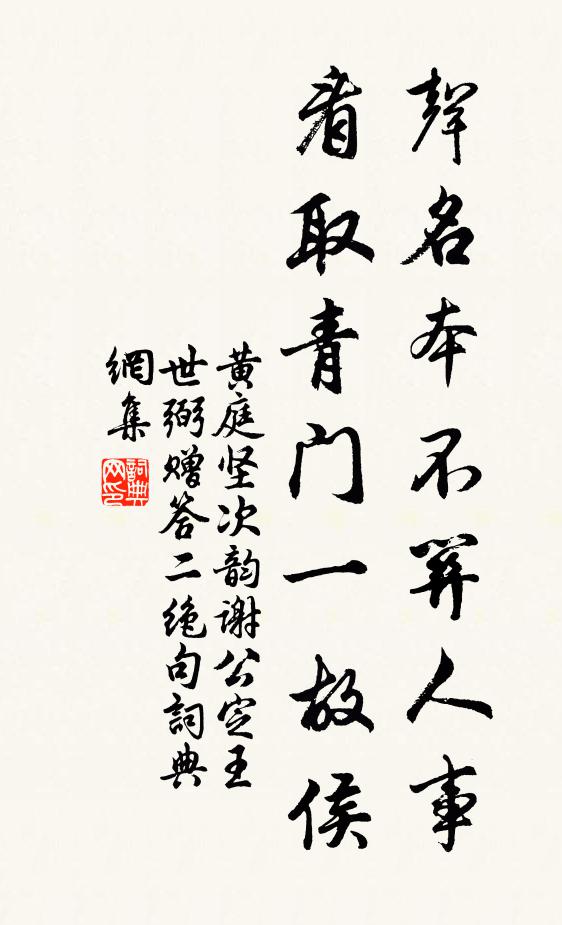 聲名本不關人事
看取青門一故侯
黄庭坚次韵谢公定王
世弼赠答二绝句詞典
網集
詞典
网印